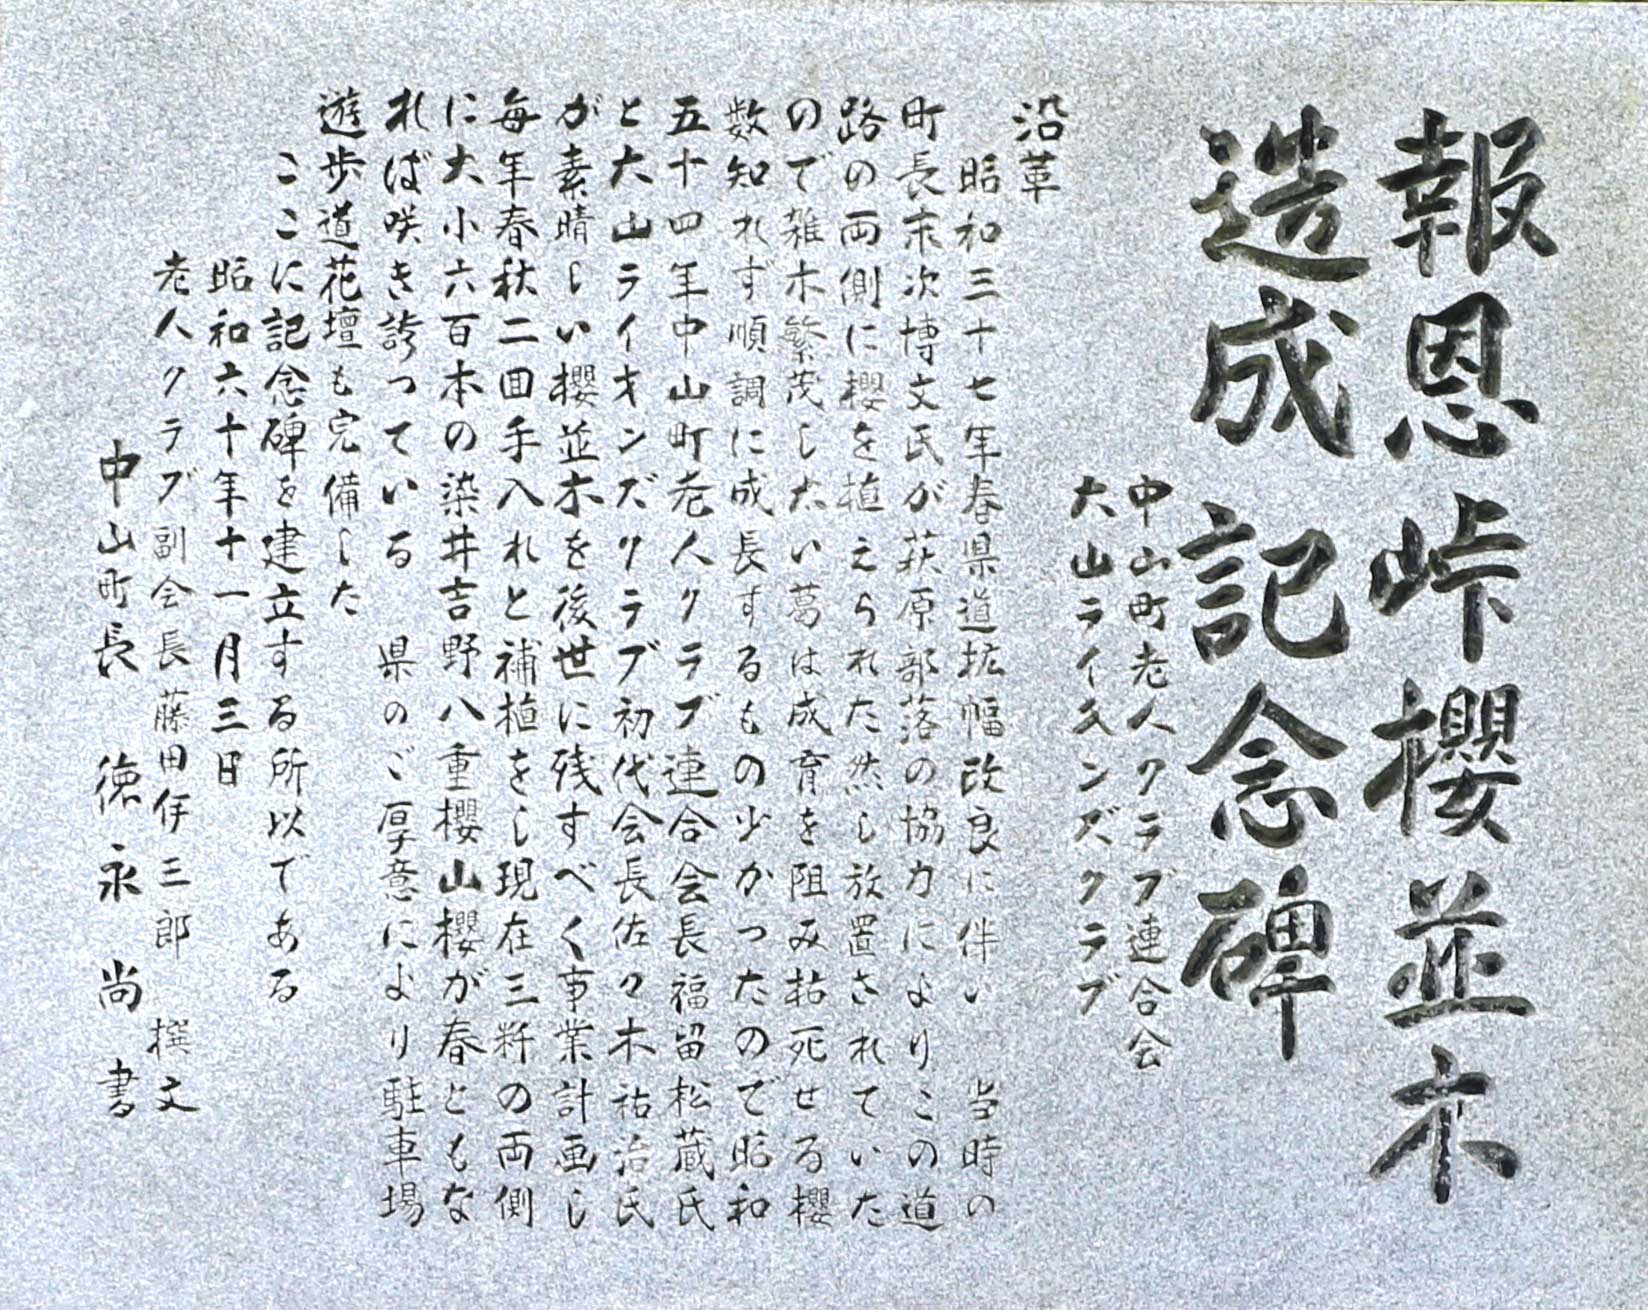 報恩峠櫻並木
造成記念碑
中山町老人クラブ連合会
大山ライオンズクラブ
沿革
昭和三十七年春県道拡幅改良に伴い　当時の
町長末次博文氏が萩原部落の協力によりこの道
路の両側に櫻を植えられた然し放置されていた
ので雑木繁茂し太い葛は成育を阻み枯死せる櫻
数知れず順調に成長するもの少かったので昭和
五十四年中山町老人クラブ連合会長福留松蔵氏
と大山ライオンズクラブ初代会長佐々木祐治氏
が素晴しい櫻並木を後世に残すべく事業計画し
毎年春秋二回手入れと補植をし現在三粁の両側
に大小六百本の染井吉野八重櫻山櫻が春ともな
れば咲き誇っている　県のご厚意により駐車場
遊歩道花壇も完備した
ここに記念碑を建立する所以である
昭和六十年十一月三日
老人クラブ副会長藤田伊三郎　撰文
中山町長　徳永尚　書